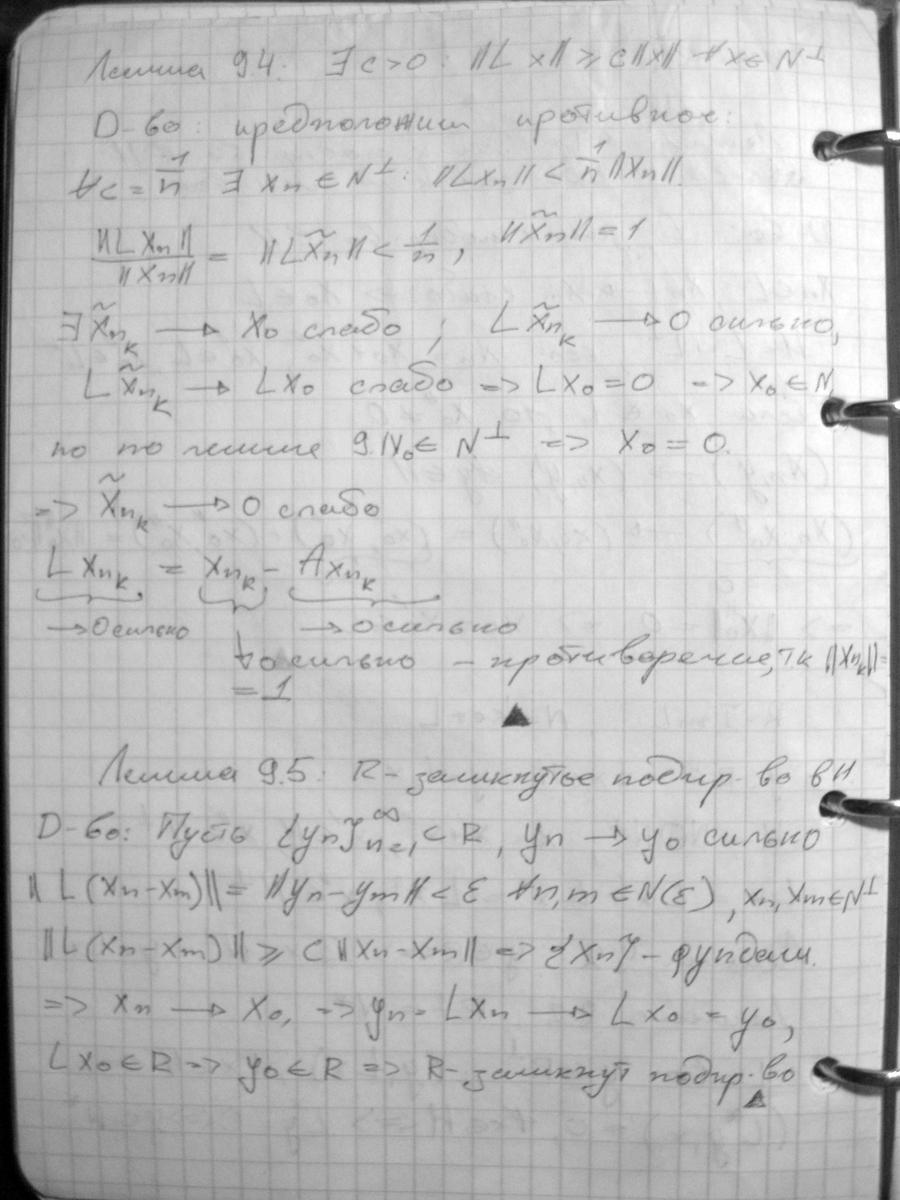 Лемма 9.4. ∃ c > 0 : ||L x|| ≥ c||x|| ∀x ∈ N⊥
D-во: предположим противное:
∀c = 1/n ∃ xn ∈ N⊥: ||Lxn|| < 1/n ||xn||.
||Lxn||/||xn|| = ||Lx̃n|| < 1/n, ||x̃n|| = 1
∃ x̃nk → x0 слабо ; L x̃nk → 0 сильно,
L x̃nk → Lx0 слабо => Lx0 = 0 => x0 ∈ N,
но по лемме 9.1 x0 ∈ N⊥ => x0 = 0.
=> x̃nk → 0 слабо
L xnk = xnk - Axnk
→ 0 сильно → 0 сильно
↛ 0 сильно – противоречие, тк ||xnk|| =
= 1 ▲
Лемма 9.5: R - замкнутое подпр-во в H
D-во: Пусть {yn}∞n=1 ⊂ R, yn → y0 сильно
||L(xn-xm)|| = ||yn-ym|| < ε ∀n,m ∈ N(ε), xn, xm ∈ N⊥
||L(xn-xm)|| ≥ C||xn-xm|| => {xn} - фундам.
=> xn → x0, => yn = Lxn → Lx0 = y0,
Lx0 ∈ R => y0 ∈ R => R - замкнут подпр-во
▲